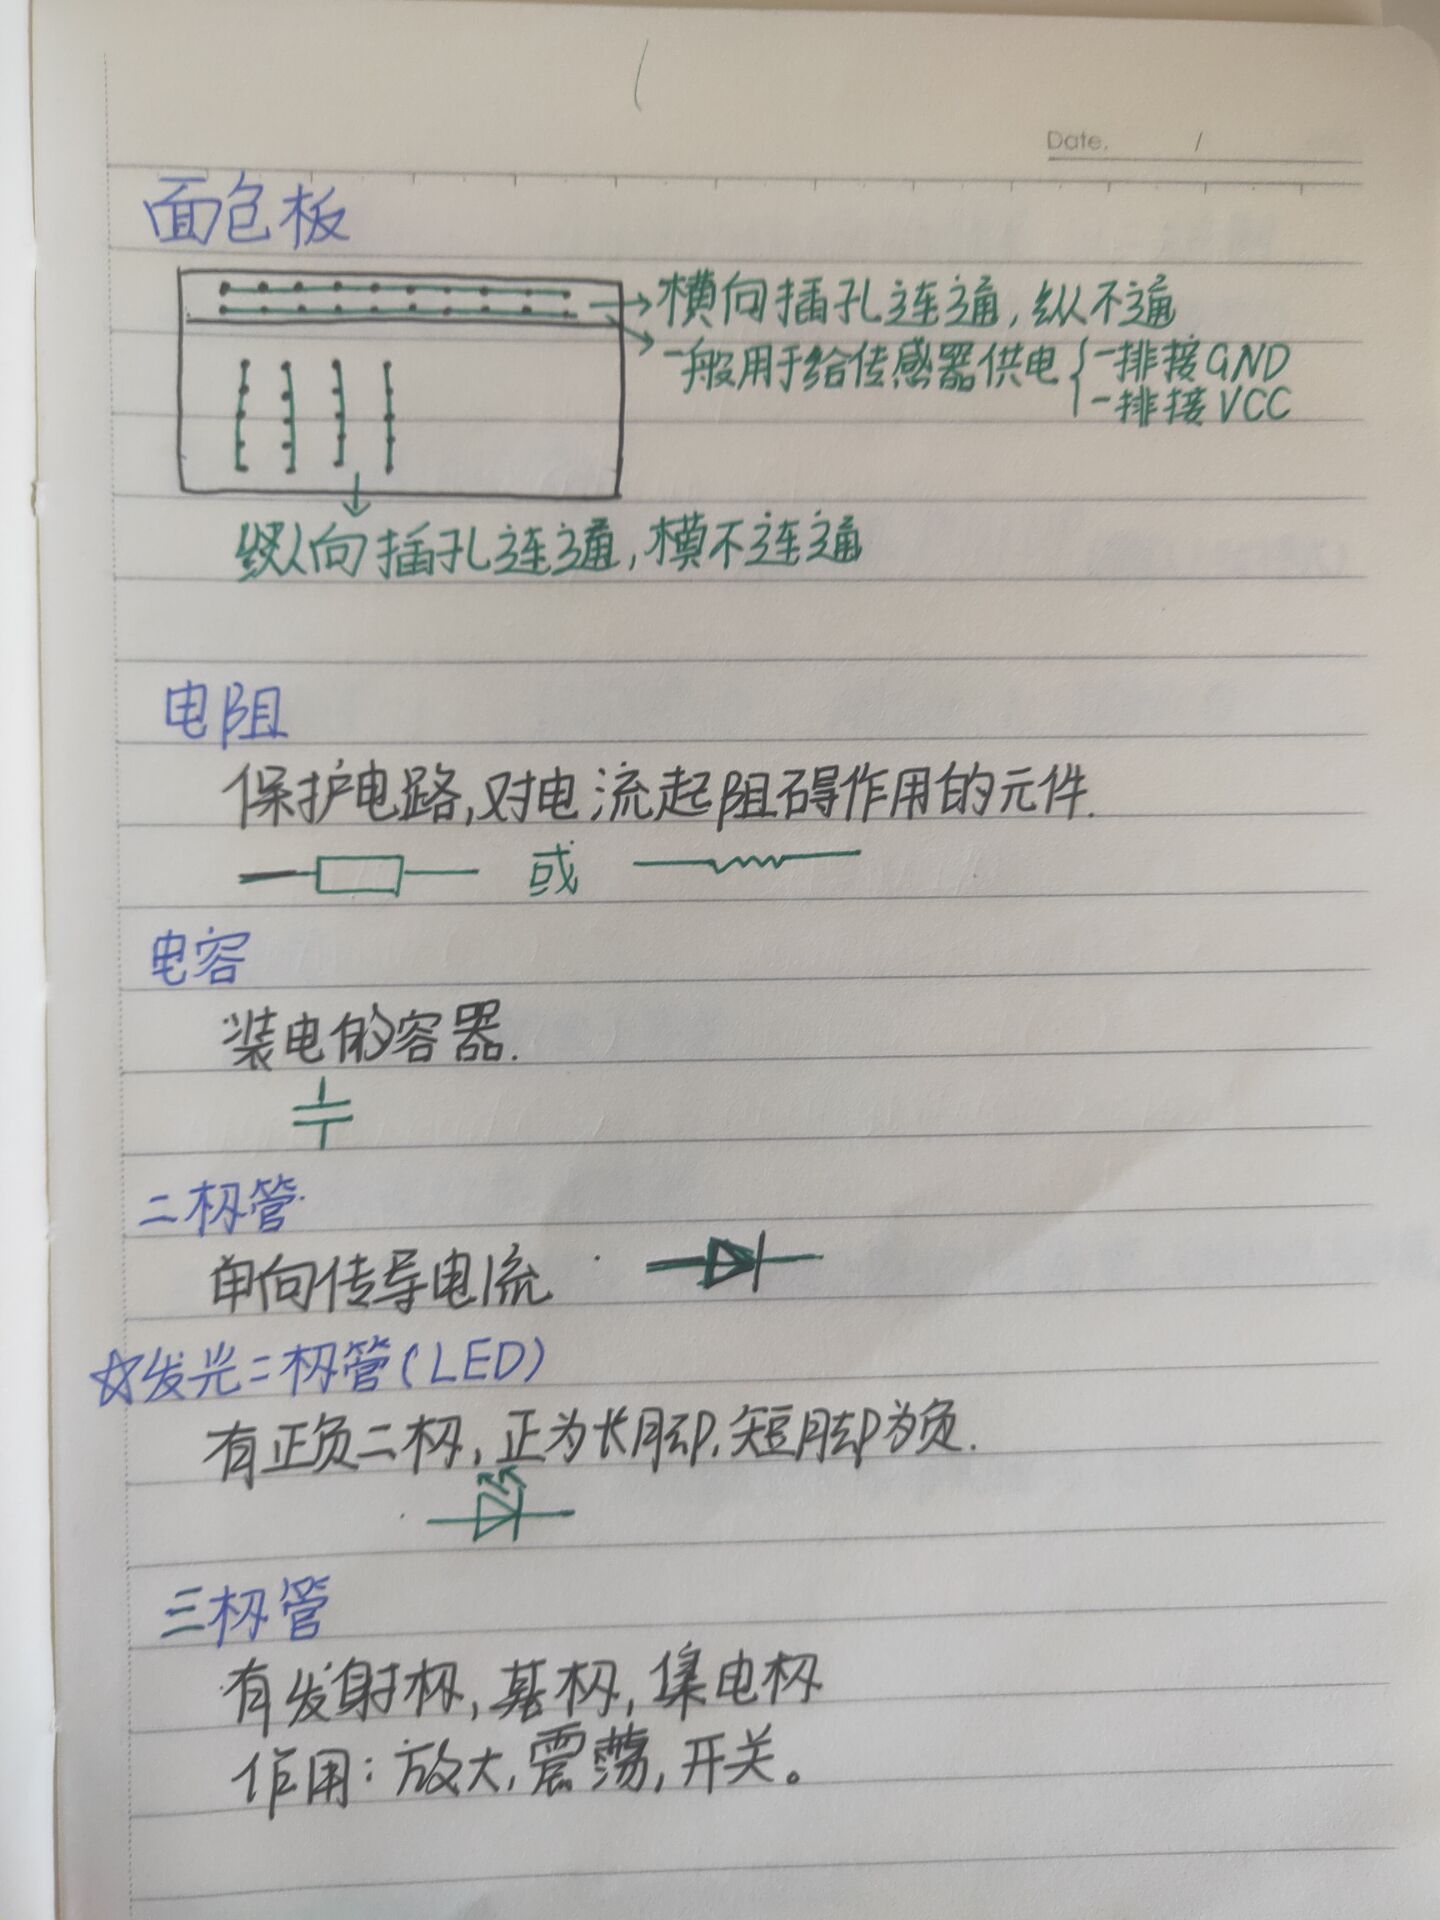 Date.    /
面包板
横向插孔连通,纵不通
一般用于给传感器供电{一排接GND
一排接VCC
纵向插孔连通,横不连通
电阻
保护电路,对电流起阻碍作用的元件.
或
电容
装电的容器.
二极管
单向传导电流
☆发光二极管(LED)
有正负二极,正为长脚,短脚为负.
三极管
有发射极,基极,集电极
作用:放大,震荡,开关。